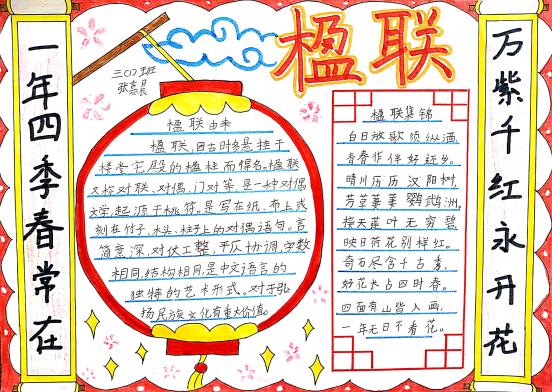 楹联
万紫千红永开花
一年四季春常在
三(7)班
楹联由来
楹联,因古时多悬挂于
楼堂宅殿的楹柱而得名。楹联
又称对联、对偶、门对等,是一种对偶
文学,起源于桃符。是写在纸、布上或
刻在竹子、木头、柱子上的对偶语句。言
简意深,对仗工整,平仄协调,字数
相同,结构相同,是中文语言的
独特的艺术形式。对于弘
扬民族文化有重大价值。
楹联集锦
白日放歌须纵酒,
青春作伴好还乡。
晴川历历汉阳树,
芳草萋萋鹦鹉洲。
接天莲叶无穷碧,
映日荷花别样红。
奇石尽含千古秀,
妙花长占四时春。
四面有山皆入画,
一年无日不看花。